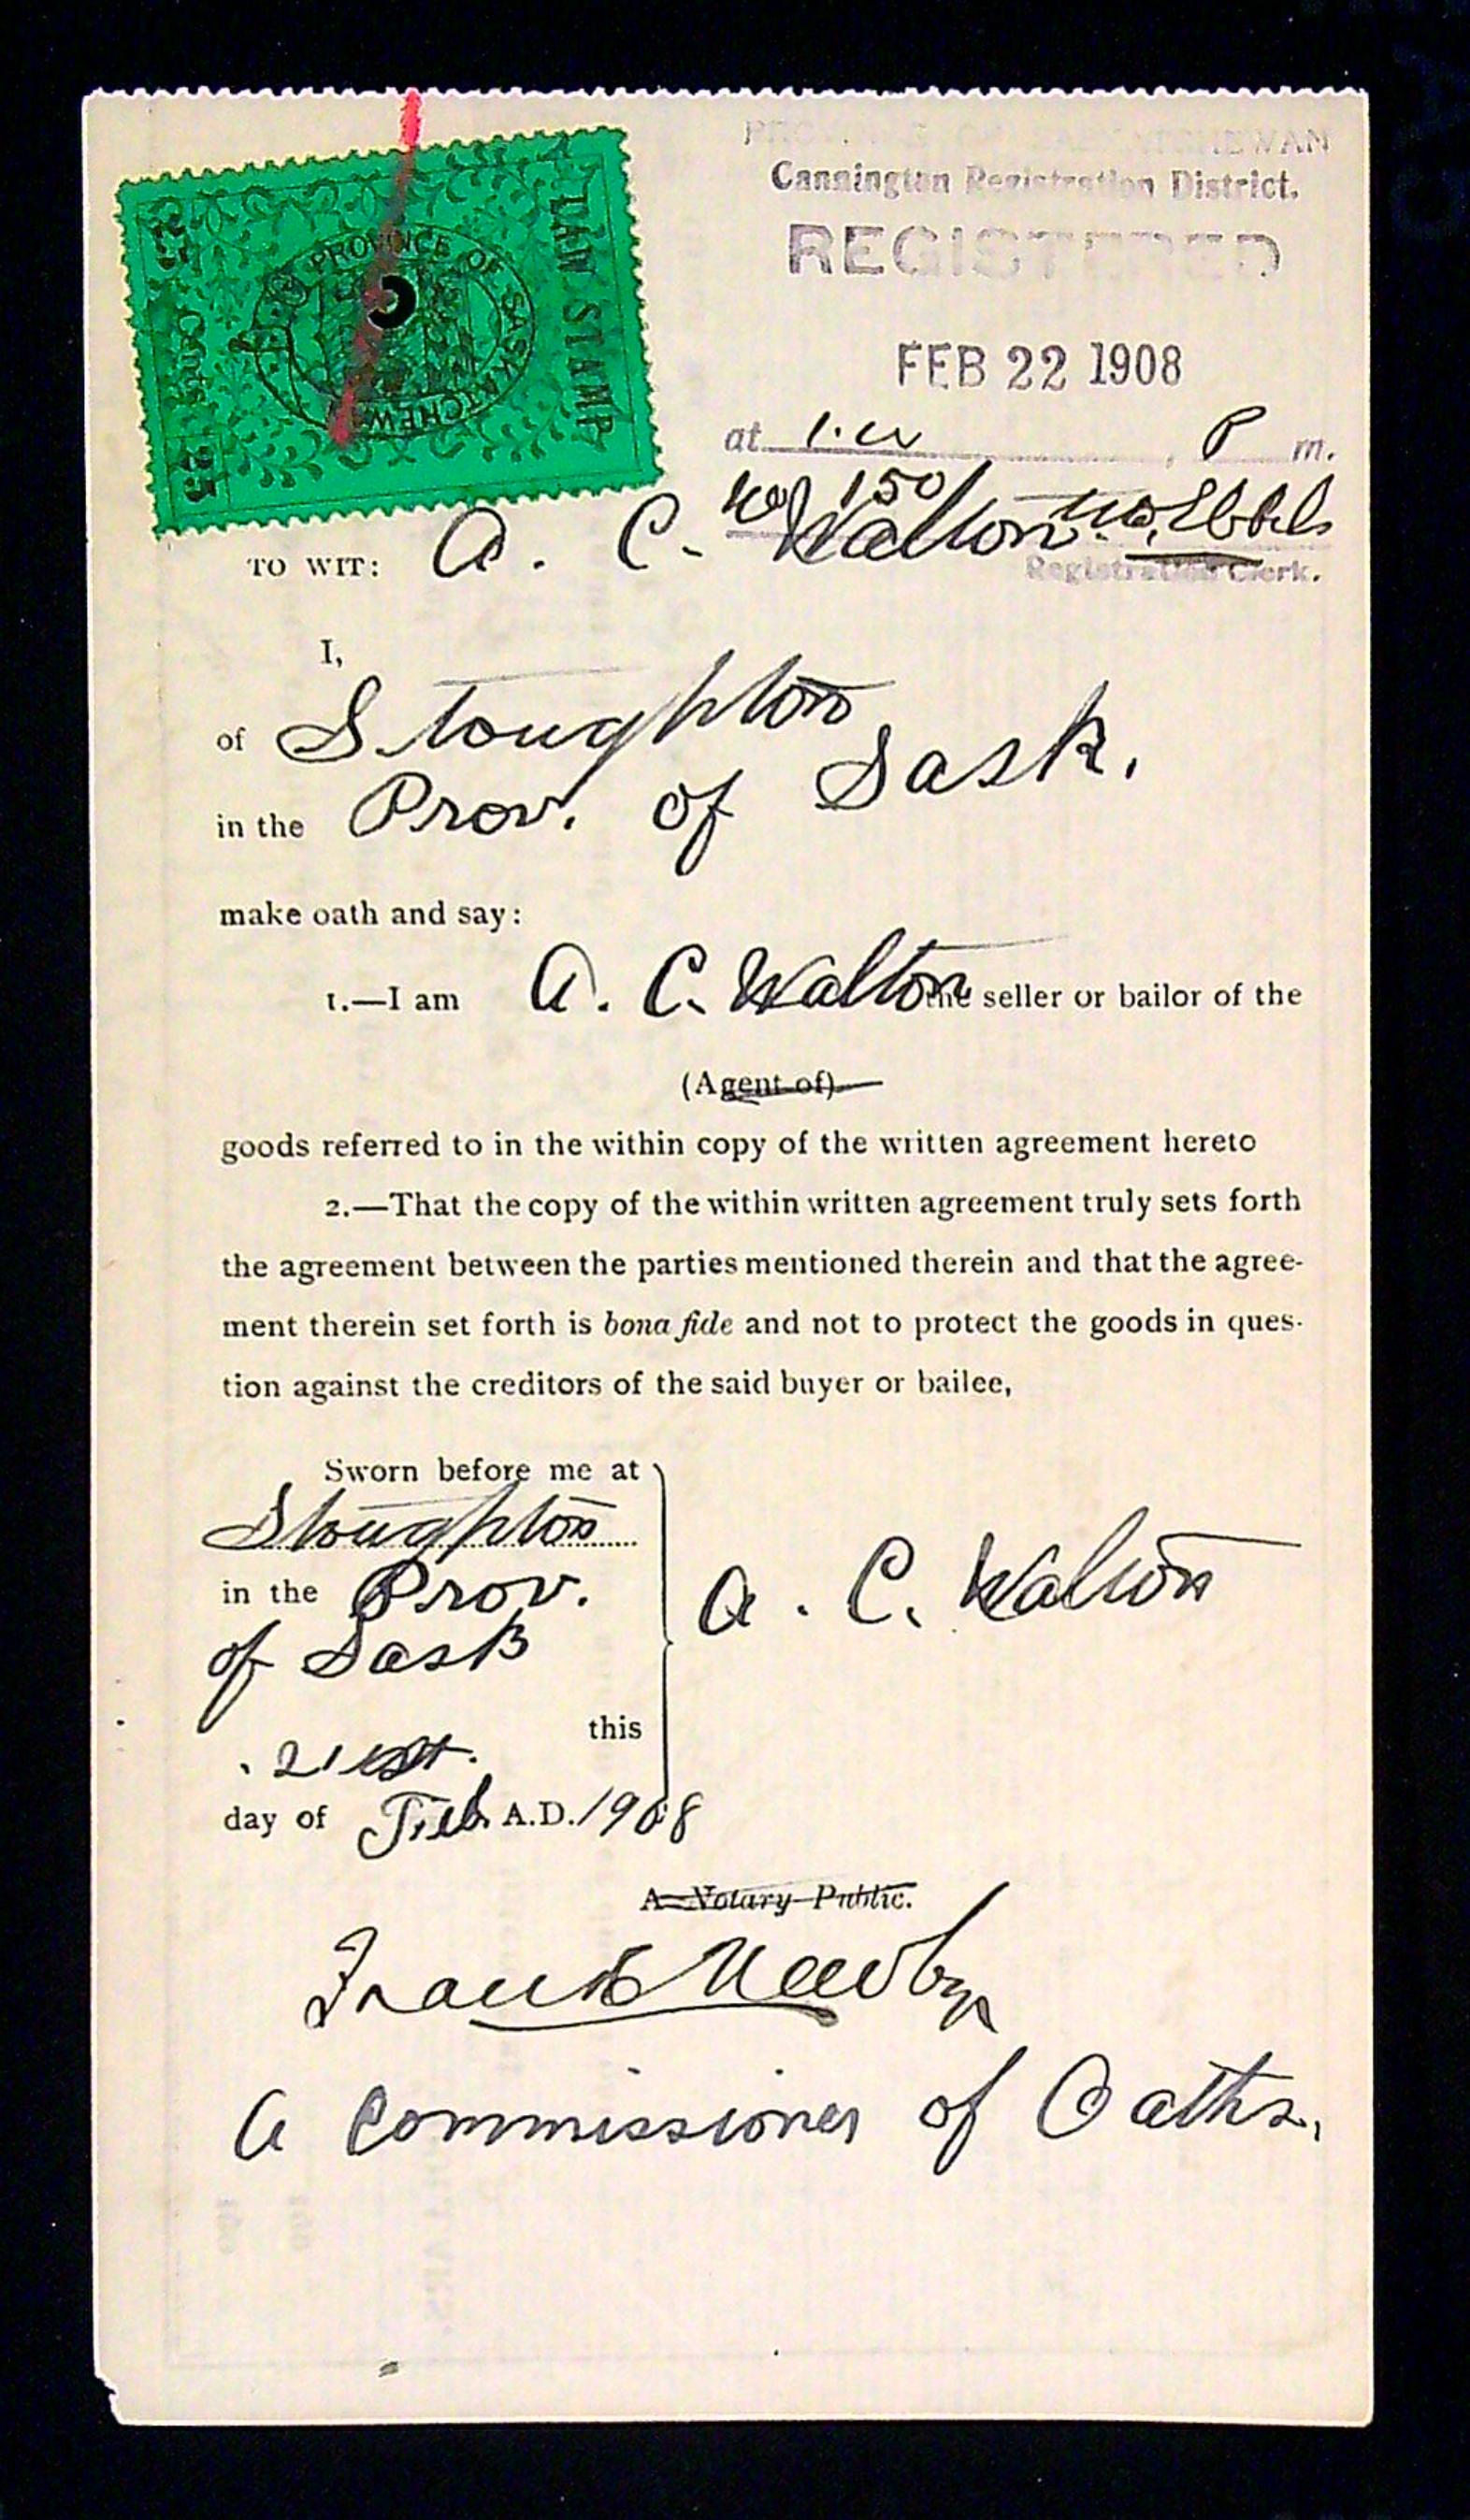 PROVINCE OF SASKATCHEWAN
Cannington Registration District.
REGISTERED
FEB 22 1908
at P m.
150
Registration Clerk.
LAW STAMP
PROVINCE OF SASKATCHEWAN
25 Cents 25
TO WIT: A. C. Walton
I,
of Stoughton
in the Prov. of Sask.
make oath and say:
1.—I am A. C. Walton the seller or bailor of the
(Agent of)
goods referred to in the within copy of the written agreement hereto
2.—That the copy of the within written agreement truly sets forth
the agreement between the parties mentioned therein and that the agree-
ment therein set forth is bona fide and not to protect the goods in ques-
tion against the creditors of the said buyer or bailee,
Sworn before me at
Stoughton
in the Prov.
of Sask
A. C. Walton
21st. this
day of Feb. A.D. 1908
A Notary Public.
Frank Newby
A Commissioner of Oaths.